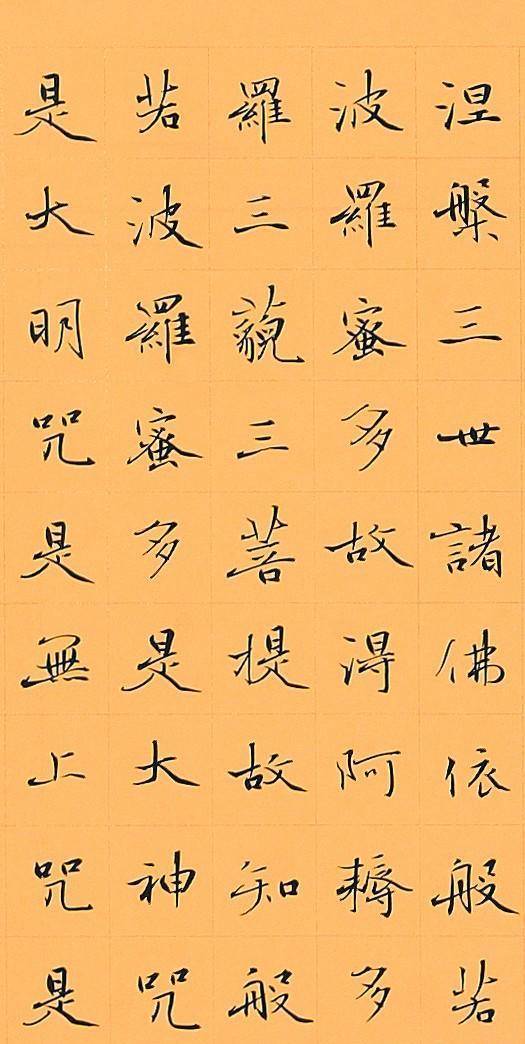 涅槃三世諸佛依般若
波羅蜜多故得阿耨多
羅三藐三菩提故知般
若波羅蜜多是大神咒
是大明咒是無上咒是